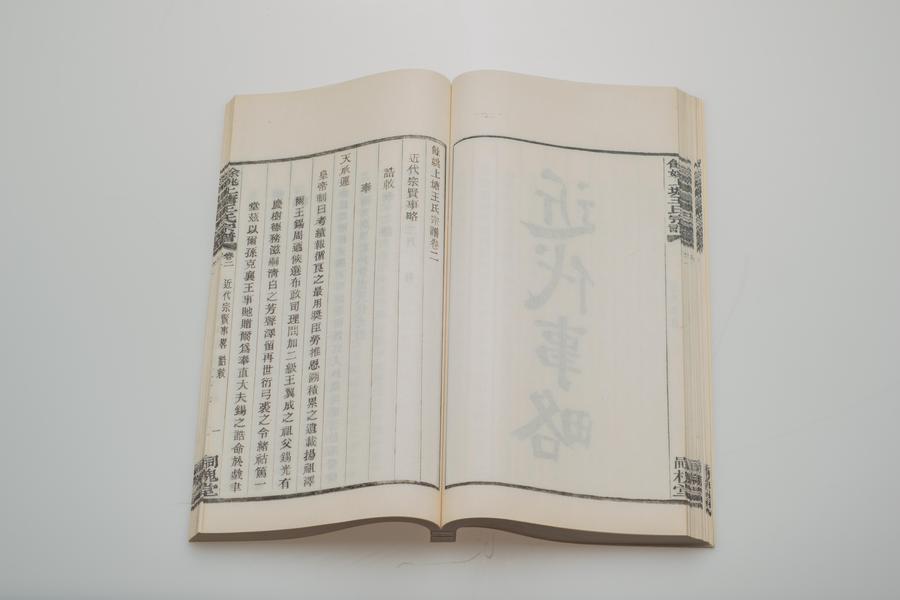 近代事略
餘姚上塘王氏宗譜卷二
近代宗賢事略
誥敕
奉
天承運
皇帝制曰考績報循良之最用奬臣勞推恩溯積累之遺載揚祖澤
爾王錫周迺候選布政司理問加二級王翼成之祖父錫光有
慶樹德務滋嗣清白之芳聲澤留再世衍弓裘之令緒祜篤一
堂茲以爾孫克襄王事貤贈爾爲奉直大夫錫之誥命於戲聿
餘姚上塘王氏宗譜
卷二
近代宗賢事略
誥敕
一
同槐堂